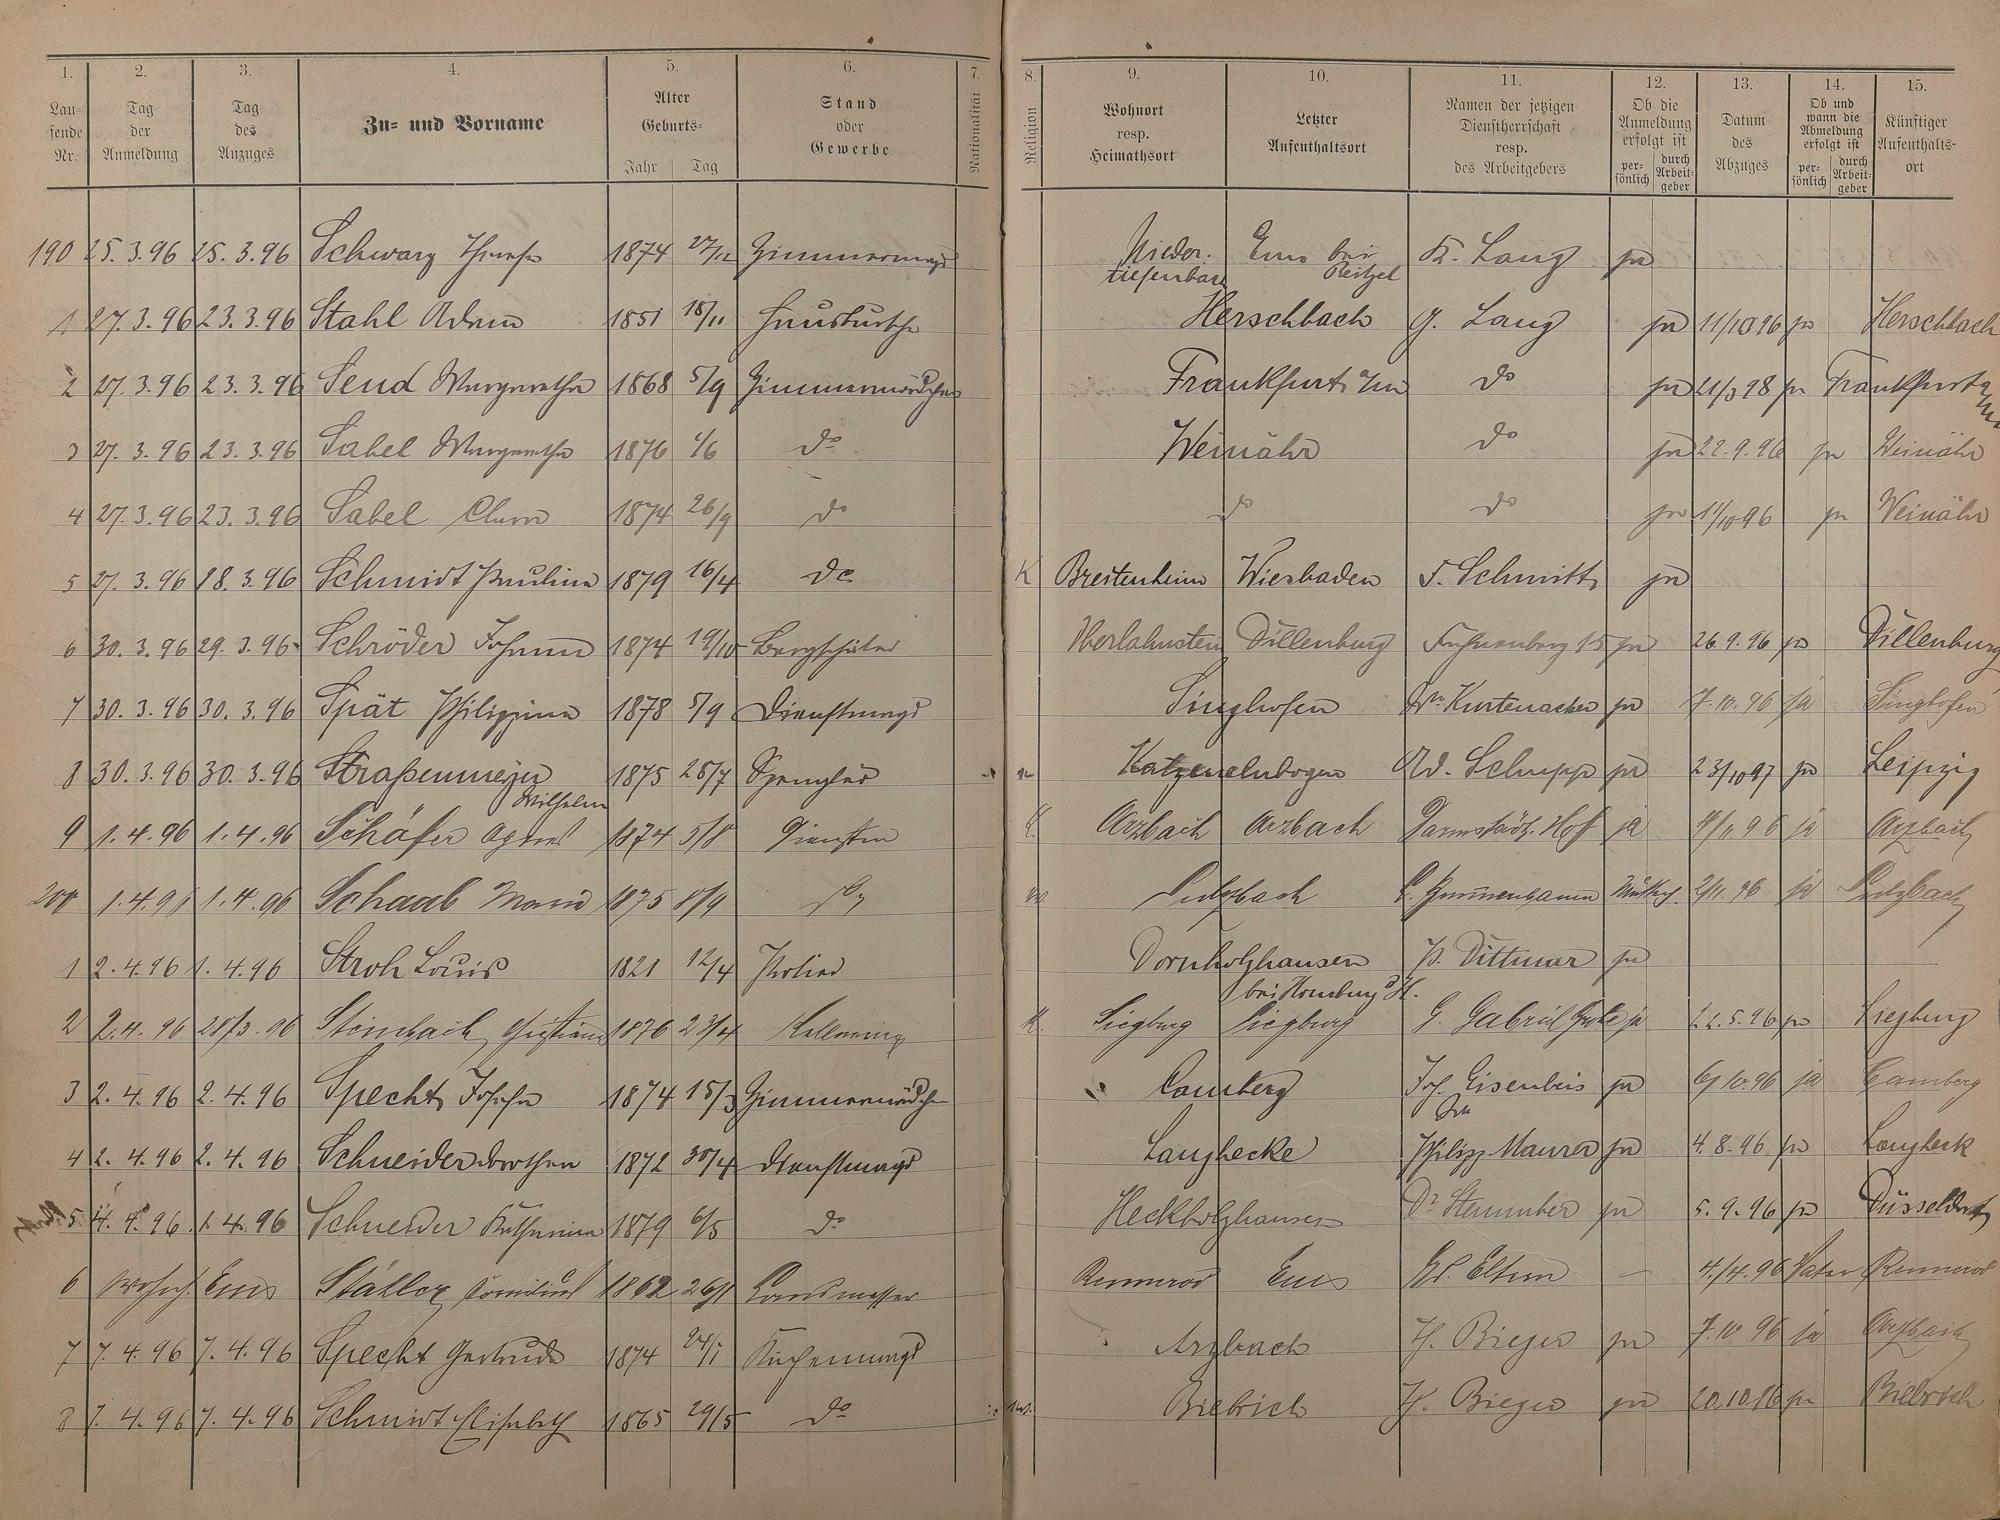 1. 2. 3. 4. 5. 6. 7. 8. 9. 10. 11. 12. 13. 14. 15.
Laufende Nr.
Tag der Anmeldung
Tag des Anzuges
Zu- und Vorname
Alter
Geburts-
Jahr Tag
Stand oder Gewerbe
Nationalität
Religion
Wohnort resp. Heimathsort
Letzter Aufenthaltsort
Namen der jetzigen Dienstherrschaft resp. des Arbeitgebers
Ob die Anmeldung erfolgt ist
persönlich durch Arbeitgeber
Datum des Abzuges
Ob und wann die Abmeldung erfolgt ist
persönlich durch Arbeitgeber
Künftiger Aufenthaltsort
190 25.3.96 25.3.96 Schwarz 1874 Zimmermagd Nieder- tiefenbach Ems bei Reitzel K. Lang ja
1 27.3.96 23.3.96 Stahl Adam 1851 18/11 Hausbursche Herschbach G. Lang ja 11/10 96 ja Herschbach
2 27.3.96 23.3.96 Send Margaretha 1868 5/9 Zimmermädchen Frankfurt a/m do ja 21/3 98 ja Frankfurt a/m
3 27.3.96 23.3.96 Sabel Margaretha 1876 1/6 do Weinähr do ja 22.9.96 ja Weinähr
4 27.3.96 23.3.96 Sabel Clara 1874 26/9 do do do ja 11/10 96 ja Weinähr
5 27.3.96 18.3.96 Schmidt Paulina 1879 16/4 do K Breitenheim Wiesbaden F. Schmitt ja
6 30.3.96 29.3.96 Schröder Johann 1874 19/10 Bergschüler Oberlahnstein Dillenburg ja 26.9.96 ja Dillenburg
7 30.3.96 30.3.96 Spät Philippina 1878 5/9 Dienstmagd Singhofen Wr. Kurtenacker ja 7.10.96 ja Singhofen
8 30.3.96 30.3.96 Straßenmeyer Wilhelm 1875 28/7 Spengler Katzenelnbogen Ad. Schupp ja 23/10 97 ja Leipzig
9 1.4.96 1.4.96 Schäfer Agnes 1874 5/8 Arzbach Arzbach Darmstädt. Hof ja ja Arzbach
200 1.4.96 1.4.96 Schaab Maria 1875 8/9 do Sulzbach 2/11.96 ja Sulzbach
1 2.4.96 1.4.96 Stroh Louis 1821 12/4 Dornholzhausen bei Homburg v.d.H. P. Dittmar ja
2 2.4.96 28/3.96 Steinbach Christian 1876 23/4 K. Siegburg Siegburg G. Gabriel ja 22.5.96 ja Siegburg
3 2.4.96 2.4.96 Specht 1874 15/3 Zimmermädchen Camberg Jos. Eisenbeis ja 6/10.96 ja Camberg
4 2.4.96 2.4.96 Schneider Dorothea 1872 30/4 Dienstmagd Langhecke Philipp Maurer ja 4.8.96 ja Langheck
5 4.4.96 1.4.96 Schneider Katharina 1879 6/5 do Heckholzhausen Dr Stemmler ja 5.9.96 ja Düsseldorf
6 Ems Ställer 1862 26/1 Landmesser Rennerod Ems Ed. Eltern – 4/4.96 Vater Rennerod
7 7.4.96 7.4.96 Specht Gertrude 1874 24/1 Küchenmagd Arzbach H. Bieger ja 7.10 96 ja Arzbach
8 7.4.96 7.4.96 Schmidt Elisabeth 1865 29/5 do Biebrich H. Bieger ja 20.10 96 ja Biebrich